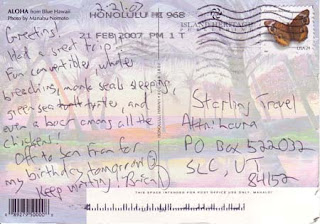 ALOHA from Blue Hawaii
Photo by Manabu Nomoto
2-21-07
HONOLULU HI 968
21 FEB 2007 PM 1 T
ISLAND HERITAGE
Greetings!
Had a great trip!
Fun convertible, whales
breaching, monk seals sleeping,
green sea turtle, and
even a boar among all the
chickens!
Off to San Fran for
my birthday tomorrow!
Keep writing! Brica
Starling Travel
Attn: Laura
PO Box 522032
SLC, UT
84152
THIS SPACE INTENTIONALLY LEFT BLANK. MAHALO!